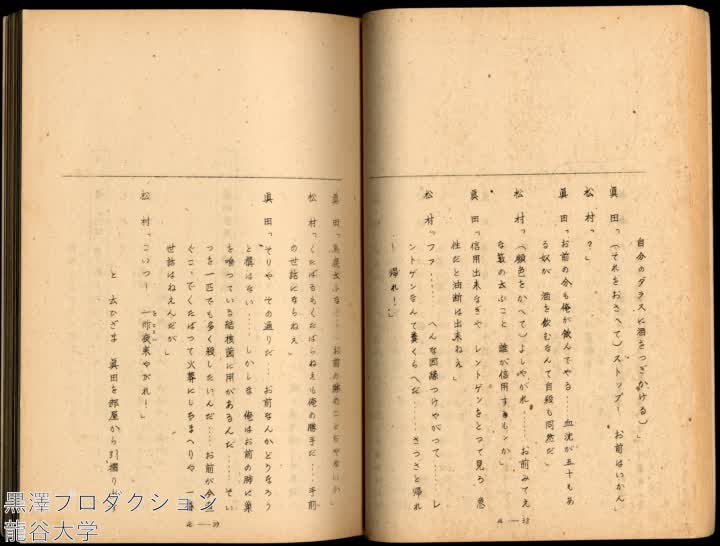 自分のグラスに酒をつぎかける）」
眞田「（それをおさへて）ストップ！　お前はいかん」
松村「？」
眞田「お前の分も俺が飲んでやる……血沈が五十もあ
る奴が　酒を飲むなんて自殺も同然だ」
松村「（顔色をかへて）よしやがれ……お前みてえ
な藪の云ふこと　誰が信用するもンか」
眞田「信用出来なきや　レントゲンをとつて見ろ　急
性だと油断は出来ねえ」
松村「ファ……　へんな因縁つけやがつて……レ
ントゲンなんて糞くらへだ……さつさと帰れ
！　帰れ！」
4—38
お前の肺のことぢやないか」
松村「くたばるもくたばらねえも俺の勝手だ……手前
の世話にならねえ」
眞田「そりや　その通りだ……お前なんかどうなろう
と構はない……しかしな　俺はお前の肺に巣
を喰つている結核菌に用があるんだ……そい
つを一匹でも多く殺したいんだ……お前が今
ぐ
くたばつて火葬にしちまへりや　一番
世話はねえんだが」
松村「こいつ！　一昨夜来やがれ！」
と　云ひざま　眞田を部屋から引摺り
4—39
黒澤プロダクション
龍谷大学